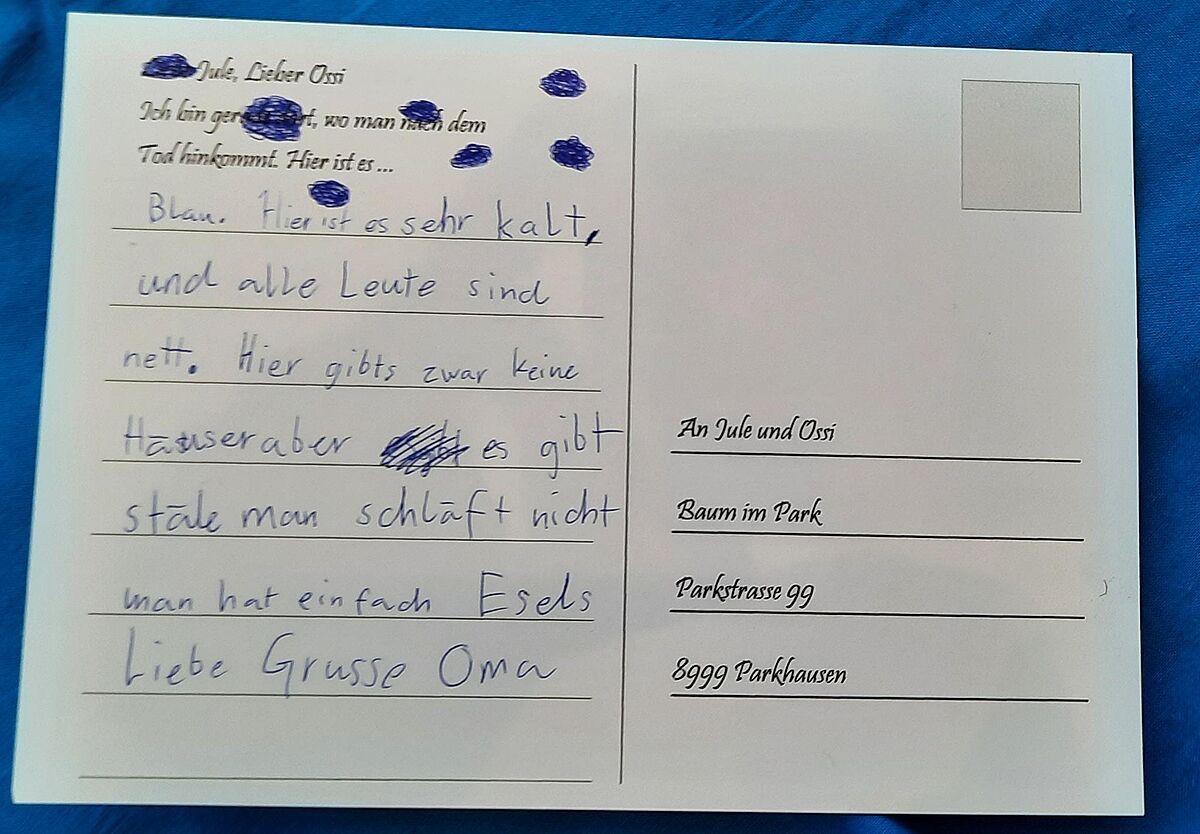 Jule, Lieber Ossi
Ich bin gerade dort, wo man nach dem
Tod hinkommt. Hier ist es ...
Blau. Hier ist es sehr kalt,
und alle Leute sind
nett. Hier gibts zwar keine
Häuser aber es gibt
ställe man schläft nicht
man hat einfach Esels
Liebe Grusse Oma
An Jule und Ossi
Baum im Park
Parkstrasse 99
8999 Parkhausen